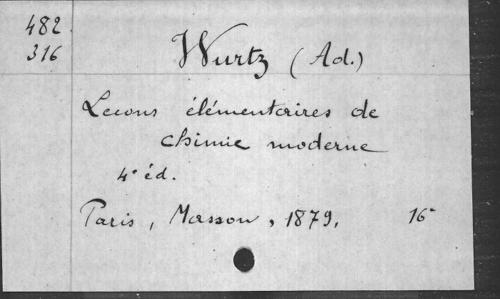 482
316
Wurtz (Ad.)
Lecons élémentaires de
chimie moderne
4e éd.
Paris, Masson, 1879, 16°